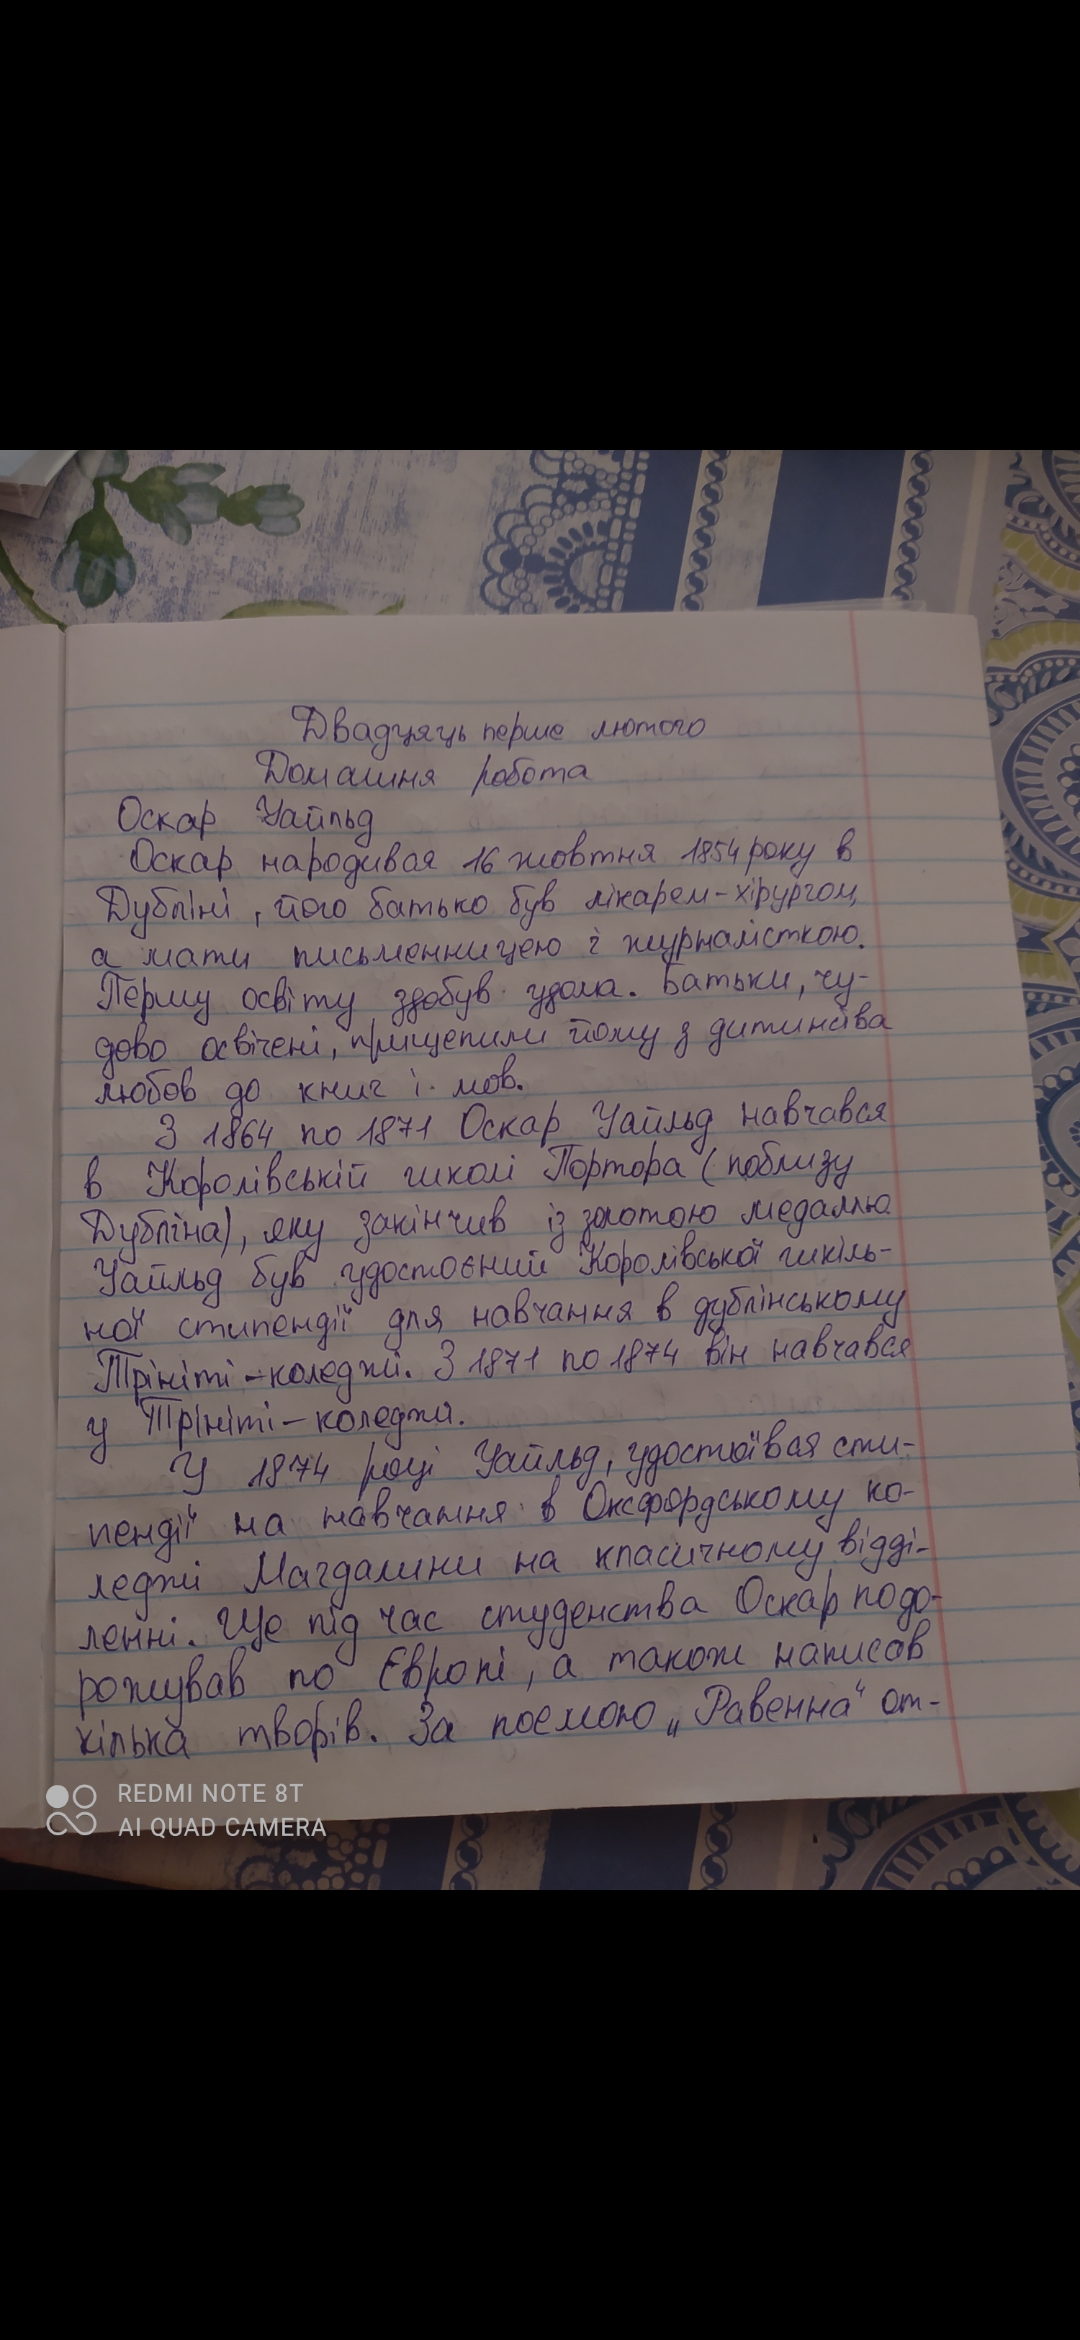 Двадцять перше лютого
Домашня робота
Оскар Уайльд
Оскар народився 16 жовтня 1854 року в
Дубліні, його батько був лікарем-хірургом,
а мати письменницею і журналісткою.
Першу освіту здобув удома. Батьки, чу-
дово освічені, прищепили йому з дитинства
любов до книг і мов.
З 1864 по 1871 Оскар Уайльд навчався
в Королівській школі Портора (поблизу
Дубліна), яку закінчив із золотою медаллю
Уайльд був удостоєний Королівської шкіль-
ної стипендії для навчання в дублінському
Трініті-коледжі. З 1871 по 1874 він навчався
у Трініті-коледжі.
У 1874 році Уайльд, удостоївся сти-
пендії на навчання в Оксфордському ко-
леджі Магдалини на класичному відді-
ленні. Ще під час студенства Оскар подо-
рожував по Європі, а також написав
кілька творів. За поемою „Равенна“ от-
REDMI NOTE 8T
AI QUAD CAMERA